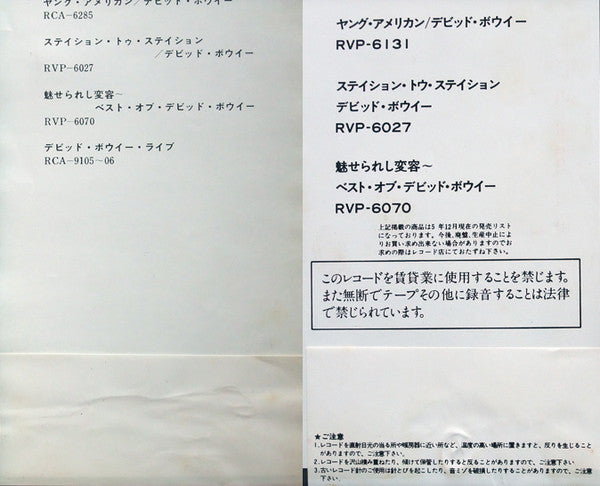 ヤング・アメリカン/デビッド・ボウイー
RCA-6285
ステイション・トゥ・ステイション
／デビッド・ボウイー
RVP-6027
魅せられし変容～
ベスト・オブ・デビッド・ボウイー
RVP-6070
デビッド・ボウイー・ライブ
RCA-9105～06
ヤング・アメリカン/デビッド・ボウイー
RVP-6131
ステイション・トゥ・ステイション
デビッド・ボウイー
RVP-6027
魅せられし変容～
ベスト・オブ・デビッド・ボウイー
RVP-6070
上記掲載の商品は5 年12月現在の発売リスト
になっております。今後、廃盤、生産中止によ
りお買い求め出来ない場合がありますのでお
求めの際はレコード店にておたずね下さい。
このレコードを賃貸業に使用することを禁じます。
また無断でテープその他に録音することは法律
で禁じられています。
★ご注意
1.レコードを直射日光の当る所や暖房器に近い所など、温度の高い場所に置きますと、反りを生じること
がありますので、ご注意下さい。
2.レコードを沢山積み重ねたり、傾けて保管したりすると反ることがありますので、ご注意下さい
3.古いレコード針のご使用は針とびを起こしたり、音ミゾを破損したりすることがありますので、ご注意下さい。